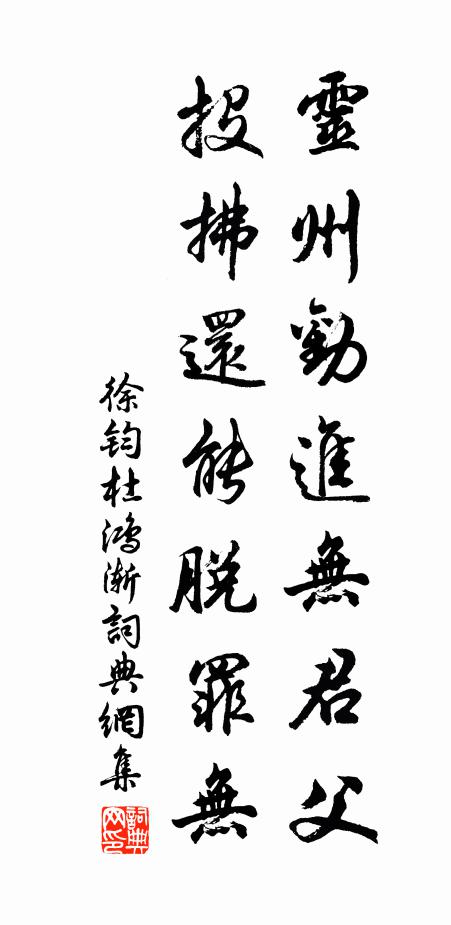 靈州勸進無君父
投拂還能脫罪無
徐鈞杜鴻漸詞典網集
詞典网印